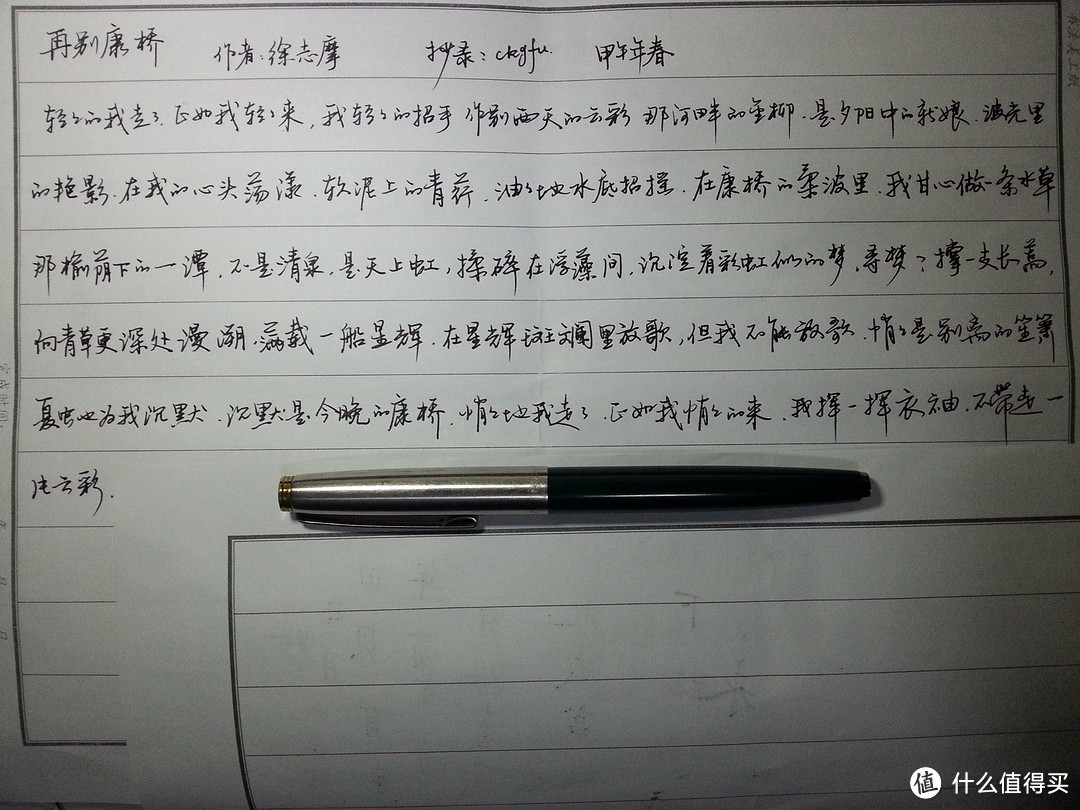 再别康桥 作者:徐志摩 抄录:chgfu 甲午年春
轻々的我走了.正如我轻々来,我轻々的招手 作别西天的云彩 那河畔的金柳.是夕阳中的新娘.波光里
的艳影.在我的心头荡漾.软泥上的青荇.油々地水底招摇.在康桥的柔波里.我甘心做一条水草
那榆荫下的一潭,不是清泉,是天上虹,揉碎在浮藻间,沉淀着彩虹似的梦.寻梦?撑一支长蒿,
向青草更深处漫溯.满载一船星辉.在星辉斑斓里放歌,但我不能放歌.悄々是别离的笙箫
夏虫也为我沉默.沉默是今晚的康桥.悄々地我走了.正如我悄々的来.我挥一挥衣袖.不带走一
片云彩.
值 什么值得买